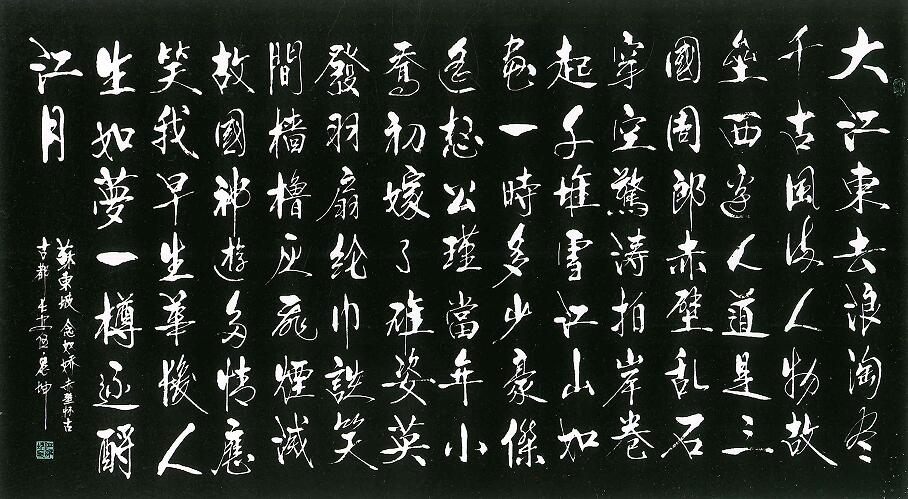 大江東去浪淘尽
千古風流人物故
壘西边人道是三
國周郎赤壁乱石
穿空驚涛拍岸卷
起千堆雪江山如
画一時多少豪傑
遥想公瑾當年小
喬初嫁了雄姿英
發羽扇纶巾談笑
間檣櫓灰飛煙滅
故國神遊多情應
笑我早生華髮人
生如夢一樽还酹
江月
蘇東坡念奴娇赤壁怀古
古都長安